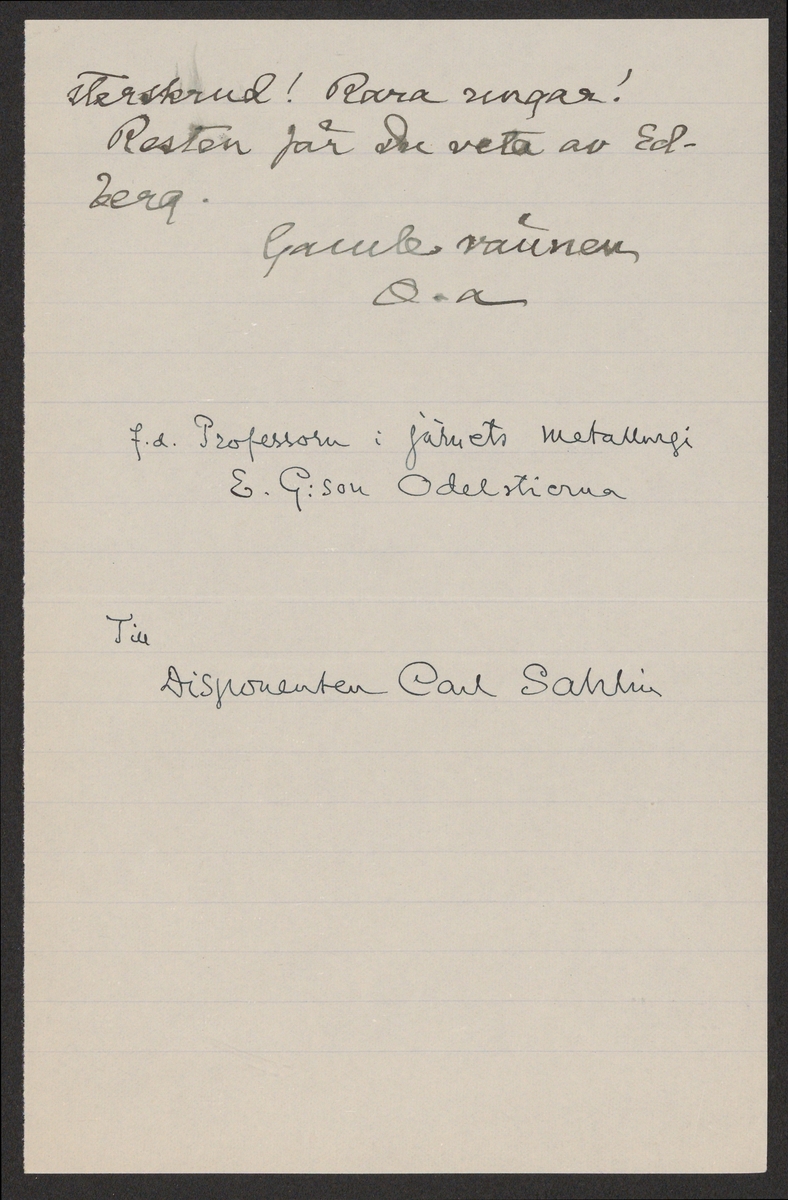 sterskrud! Rara ungar!
Resten får Du veta av Ed-
berg.
Gamle vännen
O-a
f.d. Professorn i järnets metallurgi
E. G:son Odelstierna
Till
Disponenten Carl Sahlin